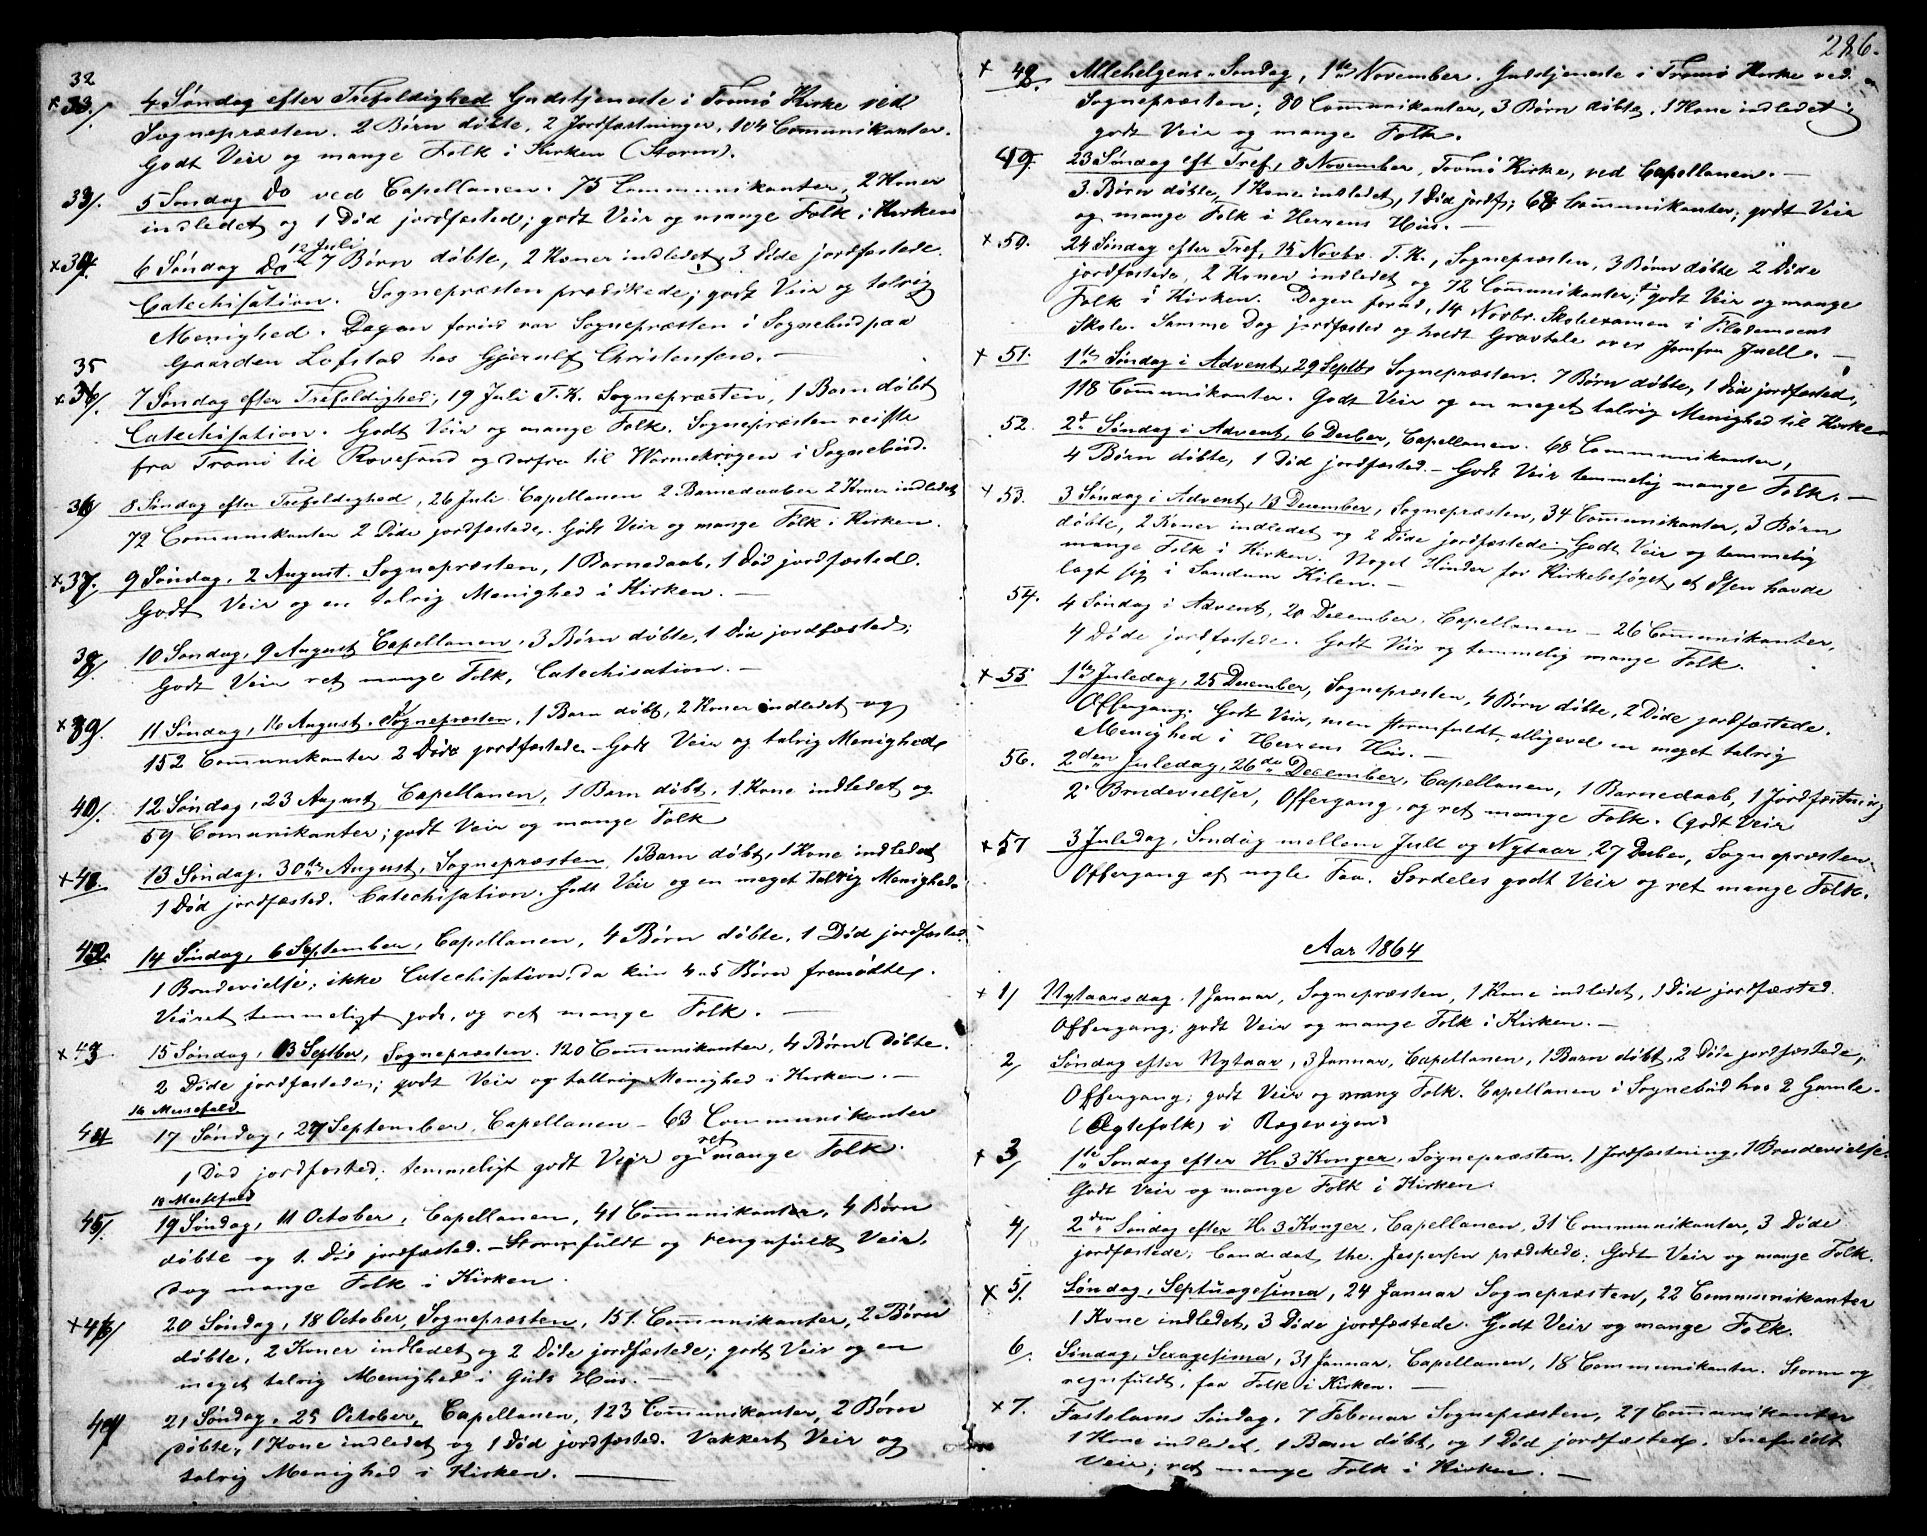 32
x 33/. 4 Søndag efter Trefoldighed Gudstjeneste i Tromø Kirke ved
Sognepræsten. 2 Børn døbte, 2 Jordfæstninger, 104 Communikanter.
Godt Veir og mange Folk i Kirken (Storm).
33/. 5 Søndag Do ved Capellanen. 75 Communikanter, 2 Koner
indledet og 1 Død jordfæsted; godt Veir og mange Folk i Kirken
12 Juli
x 34. 6 Søndag Do 7 Børn døbte, 2 Koner indledet, 3 Døde jordfæstede.
Catechisation. Sognepræsten prædikede; godt Veir og talrig
Menighed. Dagen forud var Sognepræsten i Sognebud paa
Gaarden Lofstad hos Gjerulf Christensen. —
35
x 36/. 7 Søndag efter Trefoldighed, 19 Juli T. K. Sognepræsten, 1 Barn døbt
Catechisation. Godt Veir og mange Folk. Sognepræsten reiste
fra Tromø til Revesand og derfra til Warmekrogen i Sognebud.
36/ 8 Søndag efter Trefoldighed, 26 Juli Capellanen 2 Barnedaaber 2 Koner indledet
72 Communikanter 2 Døde jordfæstede. Godt Veir og mange Folk i Kirken.
x 37. 9 Søndag, 2 August. Sognepræsten, 1 Barnedaab, 1 Død jordfæsted.
Godt Veir og en talrig Menighed i Kirken. —
38/. 10 Søndag, 9 August Capellanen, 3 Børn døbte, 1 Død jordfæsted;
Godt Veir ret mange Folk, Catechisation. —
x 39/. 11 Søndag, 16 August. Sognepræsten, 1 Barn døbt, 2 Koner indledet og
152 Communikanter 2 Døde jordfæstede. Godt Veir og talrig Menighed
40/. 12 Søndag, 23 August, Capellanen, 1 Barn døbt, 1 Kone indledet og
59 Comunikanter; godt Veir og mange Folk
x 41. 13 Søndag, 30te August, Sognepræsten, 1 Barn døbt, 1 Kone indledet
1 Død jordfæsted. Catechisation. Godt Veir og en meget talrig Menighed.
42. 14 Søndag, 6 September, Capellanen, 4 Børn døbte, 1 Død jordfæsted.
1 Brudevielse; ikke Catechisation, da kun 4 a 5 Børn fremmødte.
Veiret temmeligt godt, og ret mange Folk. —
x 43. 15 Søndag, 13 Septber, Sognepræsten. 120 Communikanter, 4 Børn døbte.
2 Døde jordfæstede; godt Veir og talrig Menighed i Kirken. —
16 Messefald
44 17 Søndag, 27 September, Capellanen — 63 Communikanter
1 Død jordfæsted; temmeligt godt Veir og ret mange Folk.
18 Messefald
45/. 19 Søndag, 11 October, Capellanen, 41 Communikanter, 4 Børn
døbte og 1 Død jordfæsted. — Stormfuldt og regnfuldt Veir,
dog mange Folk i Kirken.
x 46/ 20 Søndag, 18 October, Sognepræsten, 151 Communikanter, 2 Børn
døbte, 2 Koner indledet og 2 Døde jordfæstede; godt Veir og en
meget talrig Menighed i Guds Hus. —
47 21 Søndag, 25 October, Capellanen, 123 Communikanter, 2 Børn
døbte, 1 Kone indledet og 1 Død jordfæsted. Vakkert Veir og
talrig Menighed i Kirken. —
286.
x 48. Allehelgens-Søndag, 1te November. Gudstjeneste i Tromø Kirke ved
Sognepræsten; 80 Communikanter, 3 Børn døbte, 1 Kone indledet;
godt Veir og mange Folk.
49. 23 Søndag eft Tref, 8 November, Tromø Kirke, ved Capellanen. —
3 Børn døbte, 1 Kone indledet, 1 Død jordf; 68 Communikanter; godt Veir
og mange Folk i Herrens Hus. —
x 50. 24 Søndag efter Tref, 15 Novbr. T. K., Sognepræsten, 3 Børn døbte 2 Døde
jordfæstede, 2 Koner indledet og 72 Communikanter; godt Veir og mange
Folk i Kirken. Dagen forud, 14 Novbr. Skoleexamen i Filademoens
Skole. Samme Dag jordfæsted og holdt Gravtale over Jomfru Juell. —
x 51. 1te Søndag i Advent, 29 Septbr Sognepræsten. 7 Børn døbte, 1 Død jordfæsted,
118 Communikanter. Godt Veir og en meget talrig Menighed til Kirke
52. 2d Søndag i Advent, 6 Decber, Capellanen. 68 Communikanter,
4 Børn døbte, 1 Død jordfæsted. — Godt Veir temmelig mange Folk. —
x 53. 3 Søndag i Advent, 13 December, Sognepræsten, 34 Communikanter, 3 Børn
døbte, 2 Koner indledet og 2 Døde jordfæstede. Godt Veir og temmelig
mange Folk i Kirken. Noget Hinder for Kirkebesøget, at Isen havde
lagt sig i Sandum Kilen. —
54. 4 Søndag i Advent, 20 December, Capellanen — 26 Communikanter,
4 Døde jordfæstede. Godt Veir og temmelig mange Folk.
x 55 1te Juledag, 25 December, Sognepræsten, 4 Børn døbte, 2 Døde jordfæstede.
Offergang. Godt Veir, men stormfuldt, alligevel en meget talrig
Menighed i Herrens Hus. —
56. 2den Juledag, 26de December, Capellanen, 1 Barnedaab, 1 Jordfæstning
2 Brudevielser, Offergang, og ret mange Folk. (godt Veir
x 57 3 Juledag, Søndag mellem Jull og Nytaar, 27 Decber, Sognepræsten
Offergang af nogle Faa. Særdeles godt Veir og ret mange Folk.
Aar 1864
x 1/ Nytaarsdag, 1 Januar, Sognepræsten, 1 Kone indledet, 1 Død jordfæsted.
Offergang; godt Veir og mange Folk i Kirken. —
2/ Søndag efter Nytaar, 3 Januar, Capellanen, 1 Barn døbt, 2 Døde jordfæstede,
Offergang; godt Veir og mang Folk. Capellanen i Sognebud hos 2 Gamle
(Ægtefolk) i Rægevigen
x 3/ 1te Søndag efter H. 3 Konger, Sognepræsten. 1 Jordfæstning, 1 Brudevielse.
Godt Veir og mange Folk i Kirken.
4/ 2den Søndag efter H. 3 Konger, Capellanen, 31 Communikanter, 3 Døde
jordfæstede; Candidat the. Jespersen prædikede. Godt Veir og mange Folk.
x 5/. Søndag, Septuagesima, 24 Januar Sognepræsten, 22 Communikanter
1 Kone indledet, 3 Døde jordfæstede. Godt Veir og mange Folk.
6/. Søndag, Sexagesima, 31 Januar, Capellanen, 18 Communikanter. Storm og
regnfuldt, faa Folk i Kirken. —
x 7. Fastelavns Søndag, 7 Februar Sognepræsten, 27 Communikanter
1 Kone indledet, 1 Barn døbt, og 1 Død jordfæsted. Snefuldt
Veir; ret mange Folk i Kirken. —